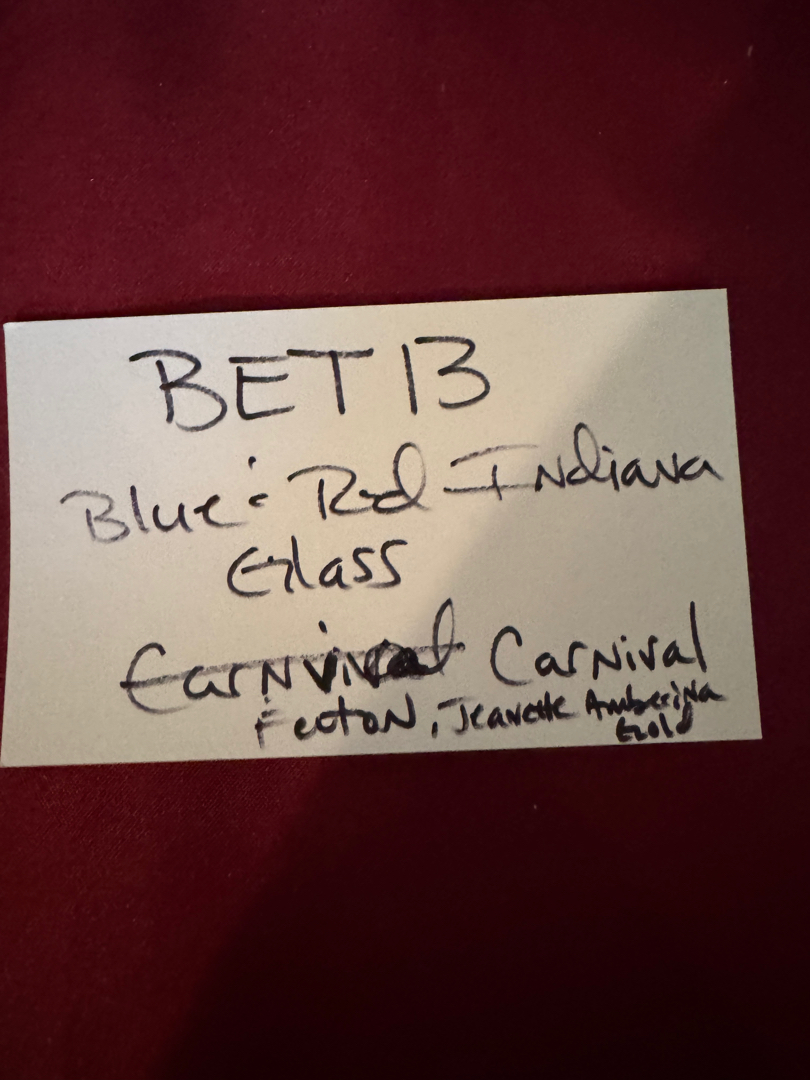 BET 13
Blue: Red Indiana
Glass
Carnival Carnival
Fenton, Jeanette Amberina
Gold